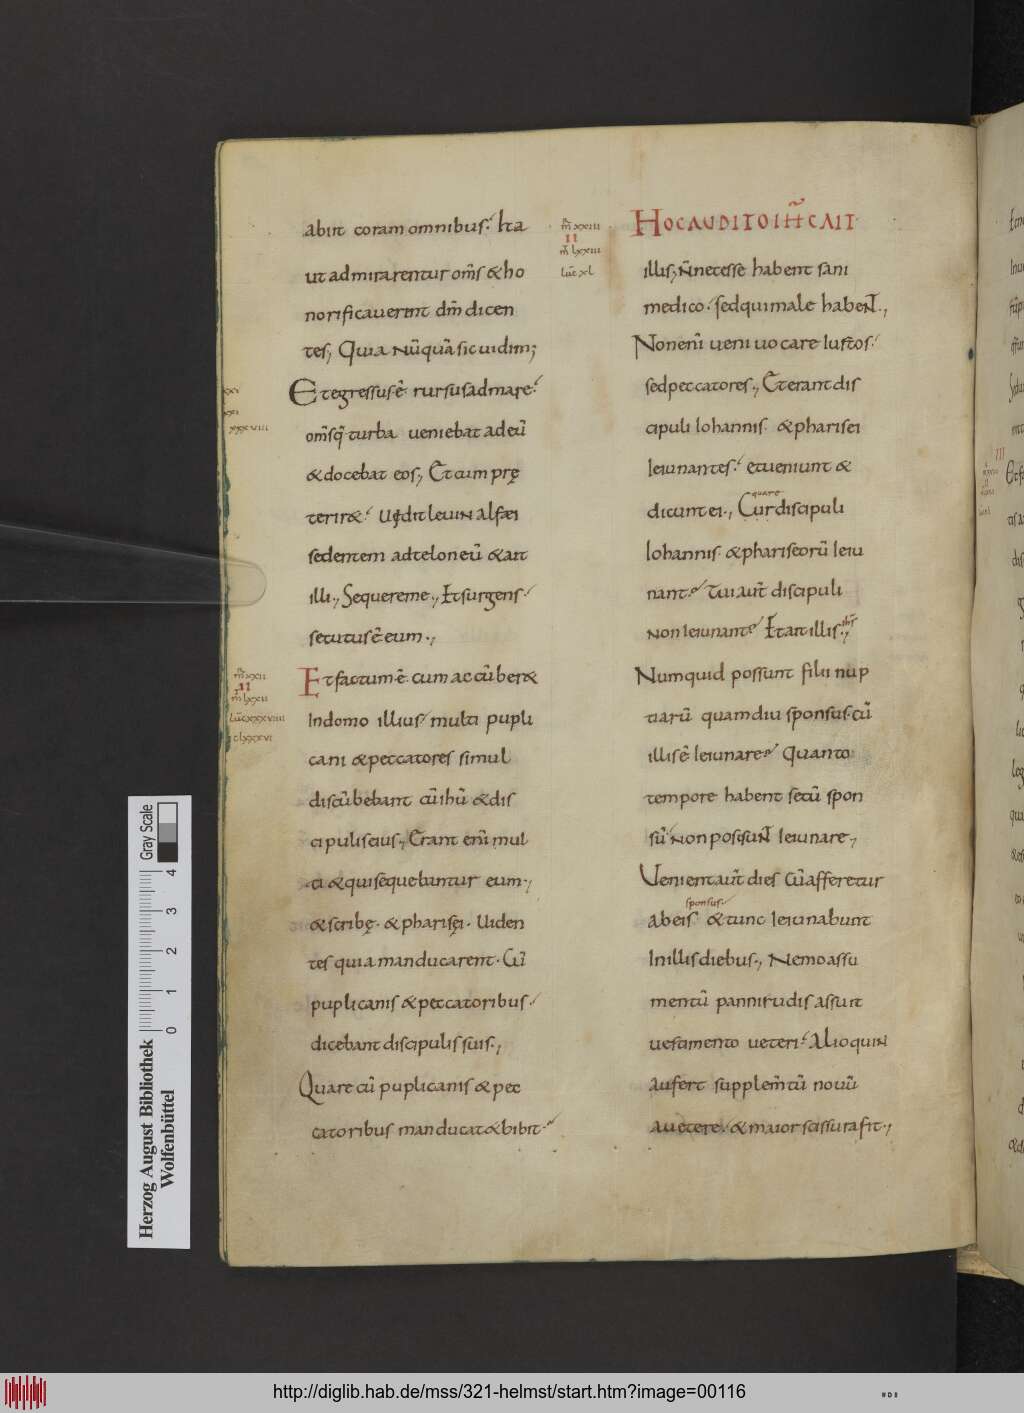 abiit coram omnibus. Ita
ut admirarentur om̅s & ho
norificaverint dm̅ dicen
tes; Quia nu̅qua̅ sic vidim;
Et egressus e̅ rursus ad mare.
om̅sq; turba veniebat ad eu̅
& docebat eos; Et cum prę
terir& vidit levin alfæi
sedentem ad teloneu̅ & ait
illi; Sequere me; Et surgens
secutus e̅ eum.,
Et factum e̅ cum accu̅ber&
In domo illius multi pupli
cani & peccatores simul
discu̅bebant cu̅ ihu̅ & dis
cipulis eius; Erant eni̅ mul
ti & qui sequebantur eum.,
& scribę. & pharisęi. Viden
tes quia manducarent. Cu̅
puplicanis & peccatoribus.
dicebant discipulis suis.,
Quare cu̅ puplicanis & pec
catoribus manducat & bibit.
m̅ xxii
II
m̅ lxxii
luc̅ xxxviii
m̅ xxiii
II
m̅ lxxiii
luc̅ xl
HOC AUDITO IHC AIT
illis; n̅ necesse habent sani
medico. sed qui male habent.,
Non eni̅ veni vocare iustos.
sed peccatores., Et erant dis
cipuli Iohannis. & pharisei
Ieiunantes. et veniunt &
dicunt ei., Cur discipuli
quare
Iohannis. & phariseoru̅ Ieiu
nant. Tui aut̅ discipuli
non Ieiunant. Et ait illis.,
Numquid possunt filii nup
tiaru̅ quamdiu sponsus cu̅
illis e̅ Ieiunare. Quanto
tempore habent secu̅ spon
su̅. Non possunt Ieiunare.,
Venient aut̅ dies Cu̅ afferetur
sponsus
ab eis & tunc Ieiunabunt
In illis diebus., Nemo assu
mentu̅ panni rudis assuit
vestimento veteri. Alioquin
aufert supplem̅tu̅ novu̅
a vetere. & maior scissura fit.,
Gray Scale
0 1 2 3 4
Herzog August Bibliothek
Wolfenbüttel
http://diglib.hab.de/mss/321-helmst/start.htm?image=00116